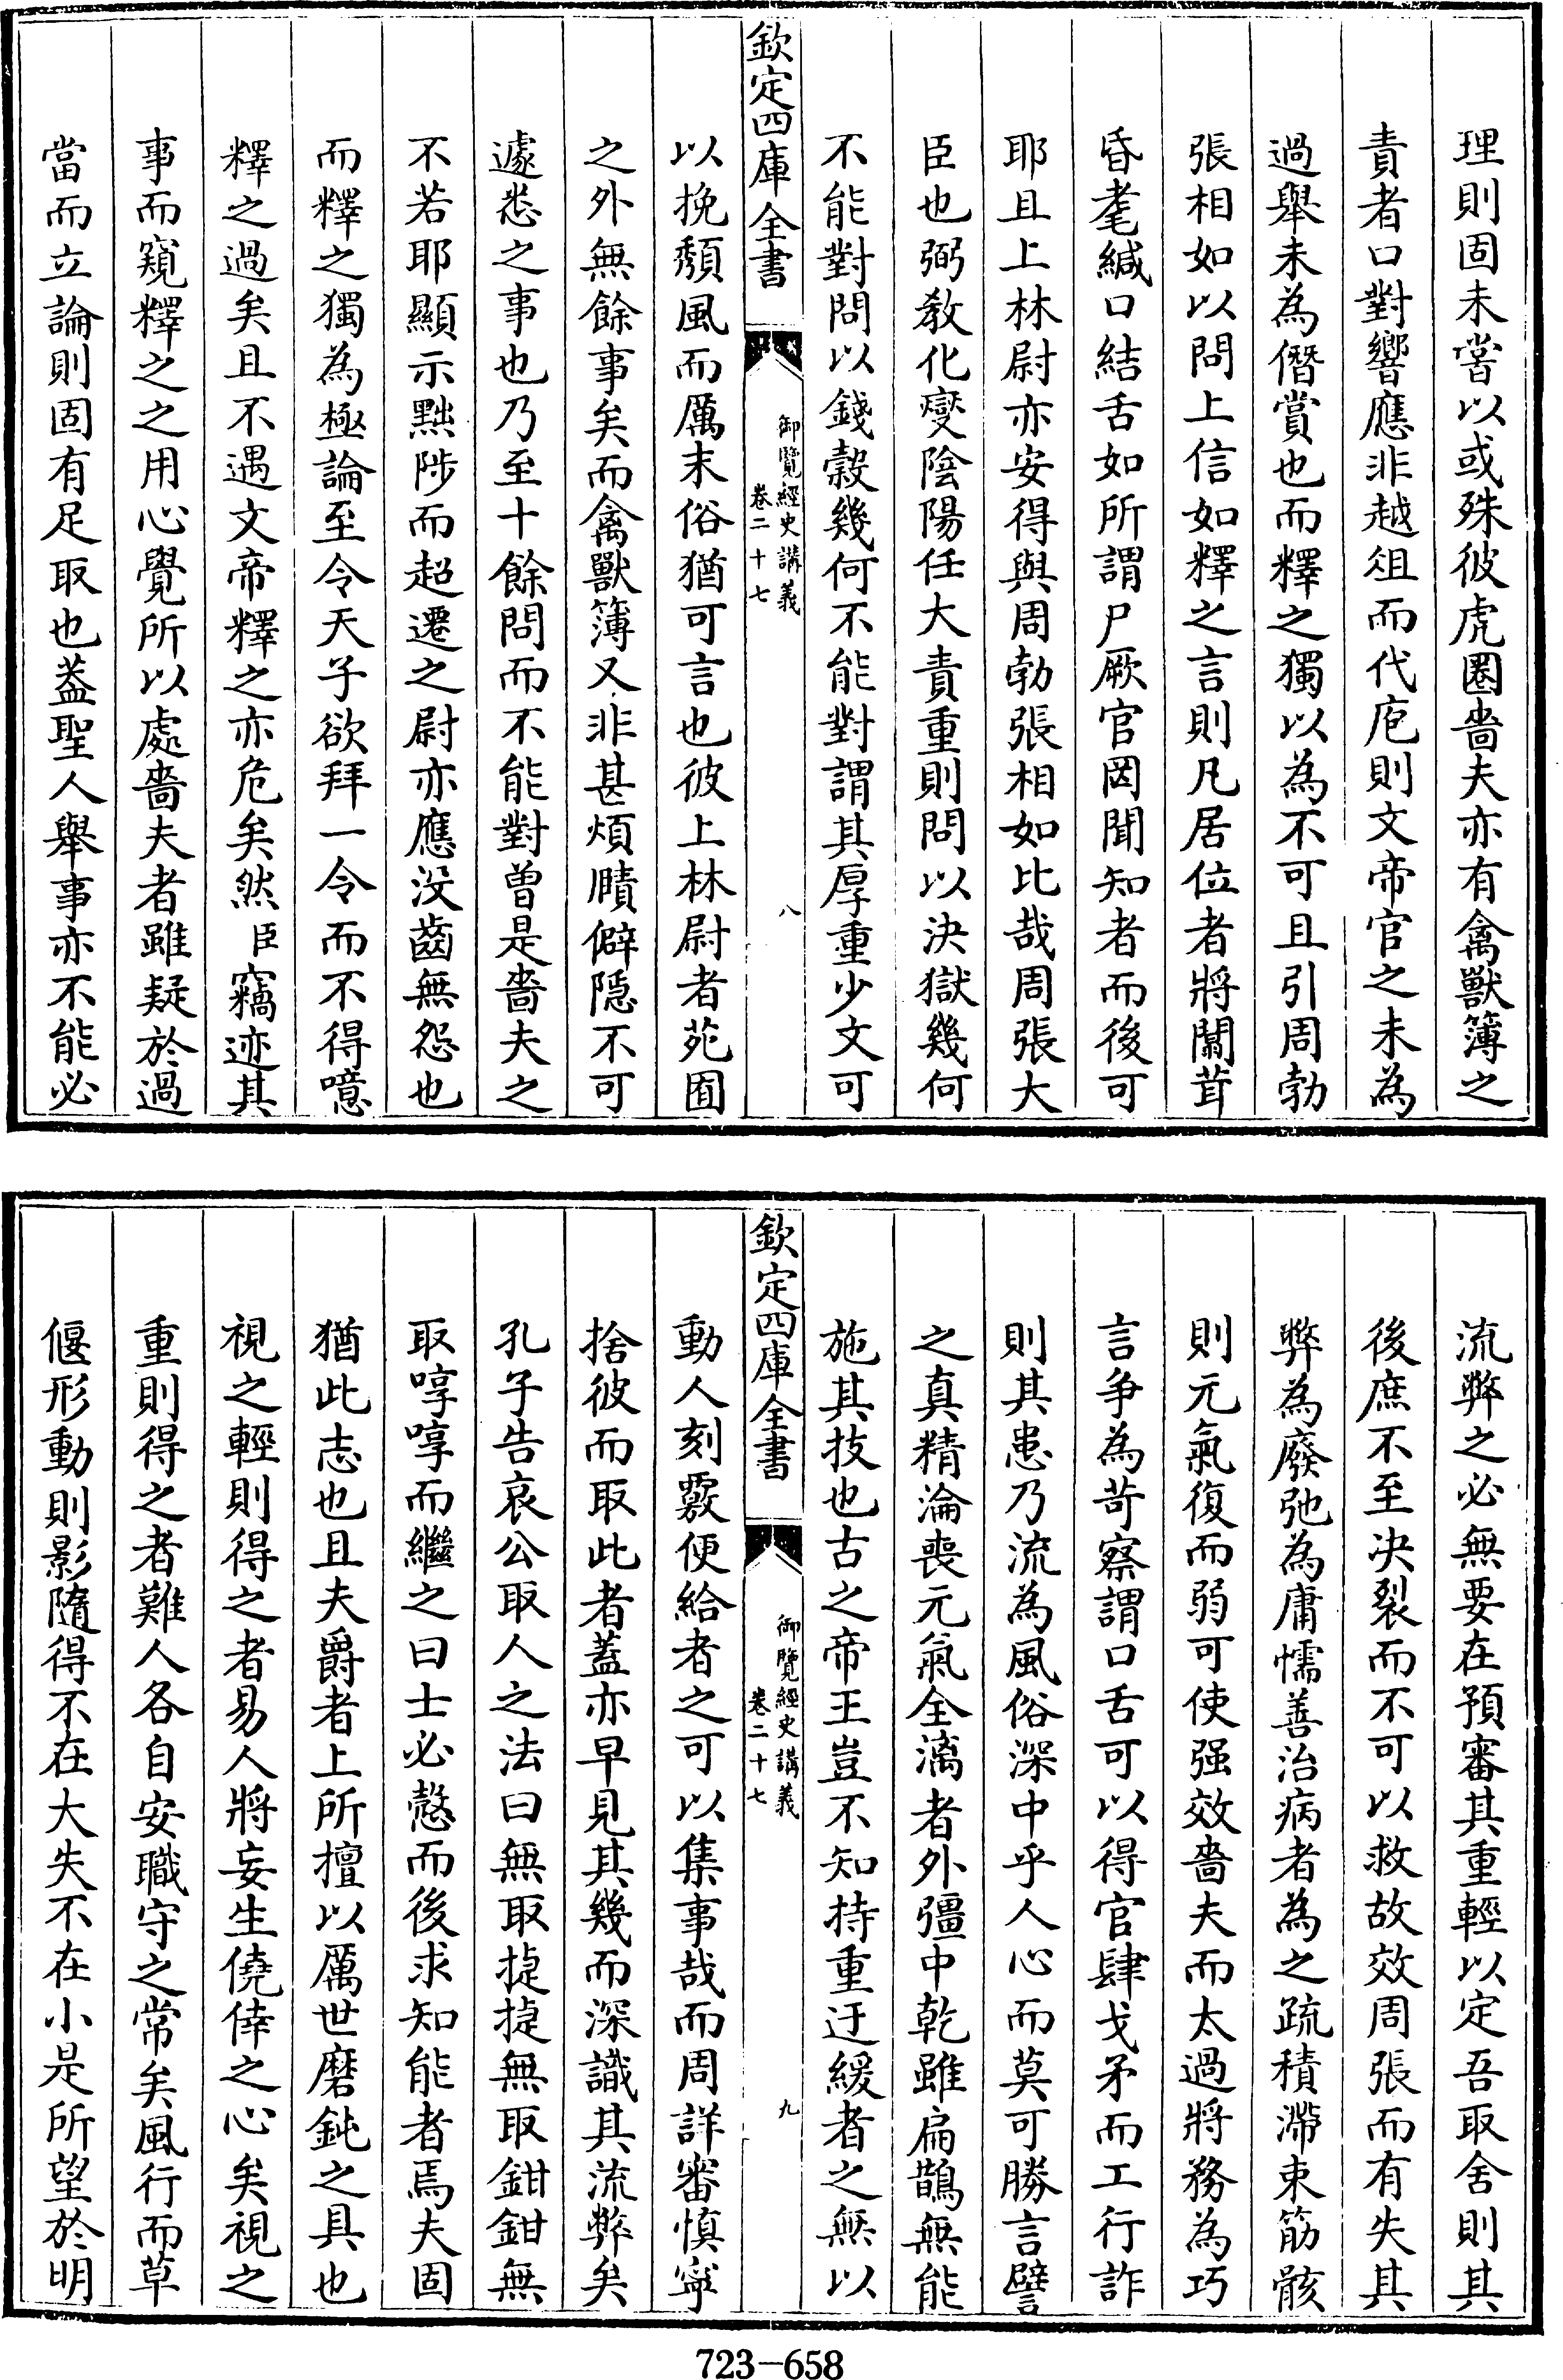 理則固未嘗以或殊彼虎圈嗇夫亦有禽獸簿之
責者口對響應非越俎而代庖則文帝官之未為
過舉未為僭賞也而釋之獨以為不可且引周勃
張相如以問上信如釋之言則凡居位者將闒茸
昏耄緘口結舌如所謂尸厥官罔聞知者而後可
耶且上林尉亦安得與周勃張相如比哉周張大
臣也弼教化燮陰陽任大責重則問以決獄幾何
不能對問以錢穀幾何不能對謂其厚重少文可
欽定四庫全書
御覽經史講義
卷二十七
八
以挽頹風而厲末俗猶可言也彼上林尉者苑囿
之外無餘事矣而禽獸簿又非甚煩賾僻隱不可
遽悉之事也乃至十餘問而不能對曾是嗇夫之
不若耶顯示黜陟而超遷之尉亦應沒齒無怨也
而釋之獨為極論至令天子欲拜一令而不得噫
釋之過矣且不遇文帝釋之亦危矣然臣竊迹其
事而窺釋之之用心覺所以處嗇夫者雖疑於過
當而立論則固有足取也葢聖人舉事亦不能必
流弊之必無要在預審其重輕以定吾取舍則其
後庶不至决裂而不可以救故效周張而有失其
弊為廢弛為庸懦善治病者為之疏積滯束筋骸
則元氣復而弱可使强效嗇夫而太過將務為巧
言爭為苛察謂口舌可以得官肆戈矛而工行詐
則其患乃流為風俗深中乎人心而莫可勝言譬
之真精淪喪元氣全漓者外彊中乾雖扁鵲無能
施其技也古之帝王豈不知持重迂緩者之無以
欽定四庫全書
御覽經史講義
卷二十七
九
動人刻覈便給者之可以集事哉而周詳審慎寧
捨彼而取此者蓋亦早見其幾而深識其流弊矣
孔子告哀公取人之法曰無取捷捷無取鉗鉗無
取啍啍而繼之曰士必慤而後求知能者焉夫固
猶此志也且夫爵者上所擅以厲世磨鈍之具也
視之輕則得之者易人將妄生僥倖之心矣視之
重則得之者難人各自安職守之常矣風行而草
偃形動則影隨得不在大失不在小是所望於明
723-658